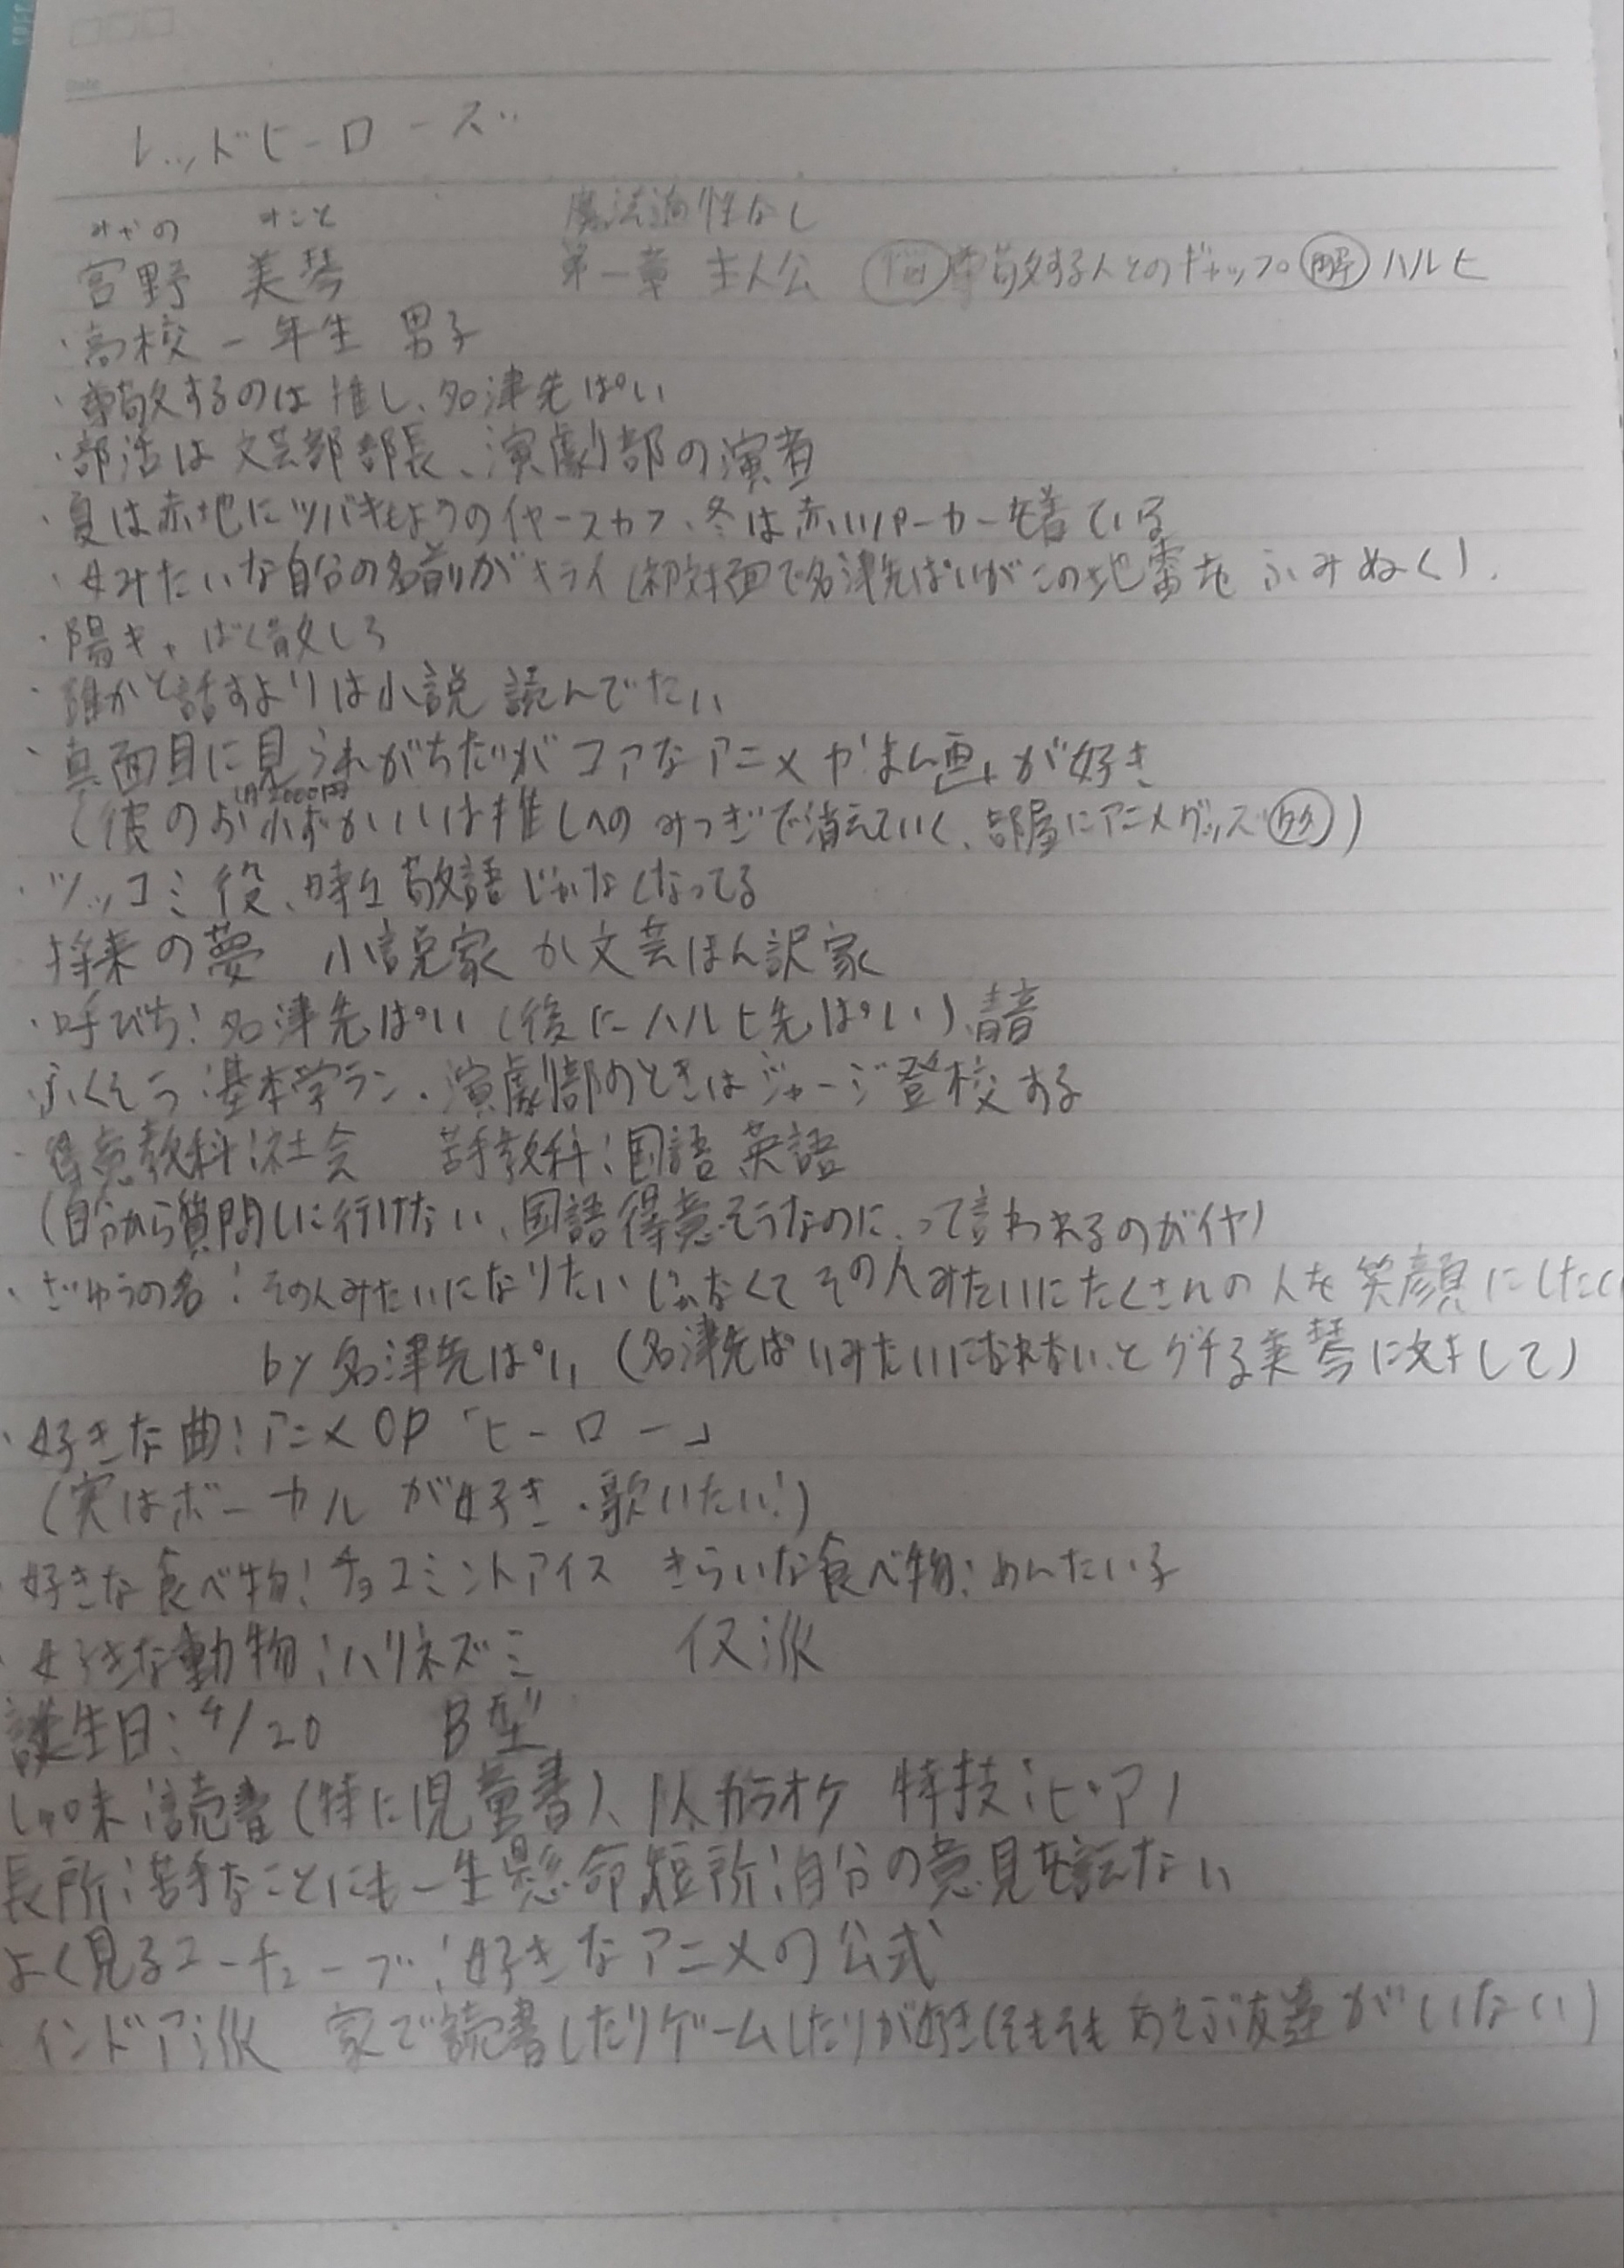 レッドヒーローズ
みやの みこと 魔法適性なし
宮野 美琴 第一章 主人公 悩 尊敬する人とのギャップ 解 ハルヒ
・高校一年生 男子
・尊敬するのは推し、名津先ぱい
・部活は文芸部部長、演劇部の演者
・夏は赤地にツバキもようのイヤースカフ、冬は赤いパーカーを着ている
・女みたいな自分の名前がキライ(初対面で名津先ぱいがこの地雷をふみぬく)、
・陽キャばく散しろ
・誰かと話すよりは小説読んでたい
・真面目に見られがちだがコアなアニメやまん画が好き
1月2000円
(彼のお小ずかいは推しへのみつぎで消えていく、部屋にアニメグッズ多)
・ツッコミ役、時々敬語じゃなくなってる
将来の夢 小説家か文芸ほん訳家
・呼び方:名津先ぱい(後にハルヒ先ぱい)、青音
ふくそう:基本学ラン・演劇部のときはジャージ登校する
・得意教科:社会 苦手教科:国語 英語
(自分から質問しに行けない、国語得意そうなのに、って言われるのがイヤ)
・ざゆうの名:その人みたいになりたいじゃなくてその人みたいにたくさんの人を笑顔にしたい
by 名津先ぱい(名津先ぱいみたいになれない、とグチる美琴に対して)
・好きな曲:アニメOP「ヒーロー」
(実はボーカルが好き・歌いたい!)
・好きな食べ物:チョコミントアイス きらいな食べ物:めんたい子
・好きな動物:ハリネズミ 仅派
誕生日:4/20 B型
しゅ味:読書(特に児童書)、1人カラオケ 特技:ピアノ
長所:苦手なことにも一生懸命 短所:自分の意見を言えない
よく見るユーチューブ:好きなアニメの公式
インドア派 家で読書したりゲームしたりが好き(そもそもあそぶ友達がいない)